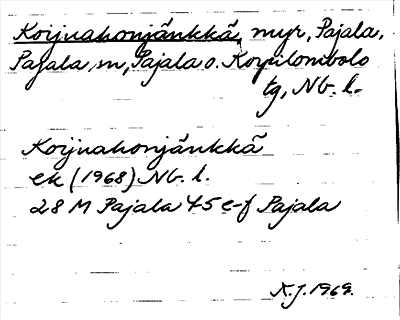 Koijuahonjänkkä, myr, Pajala,
Pajala sn, Pajala o. Korpilombolo
tg, Nb. l.
Koijuahonjänkkä
ek (1968) Nb. l.
28 M Pajala 4-5 e-f Pajala
K.J. 1969.